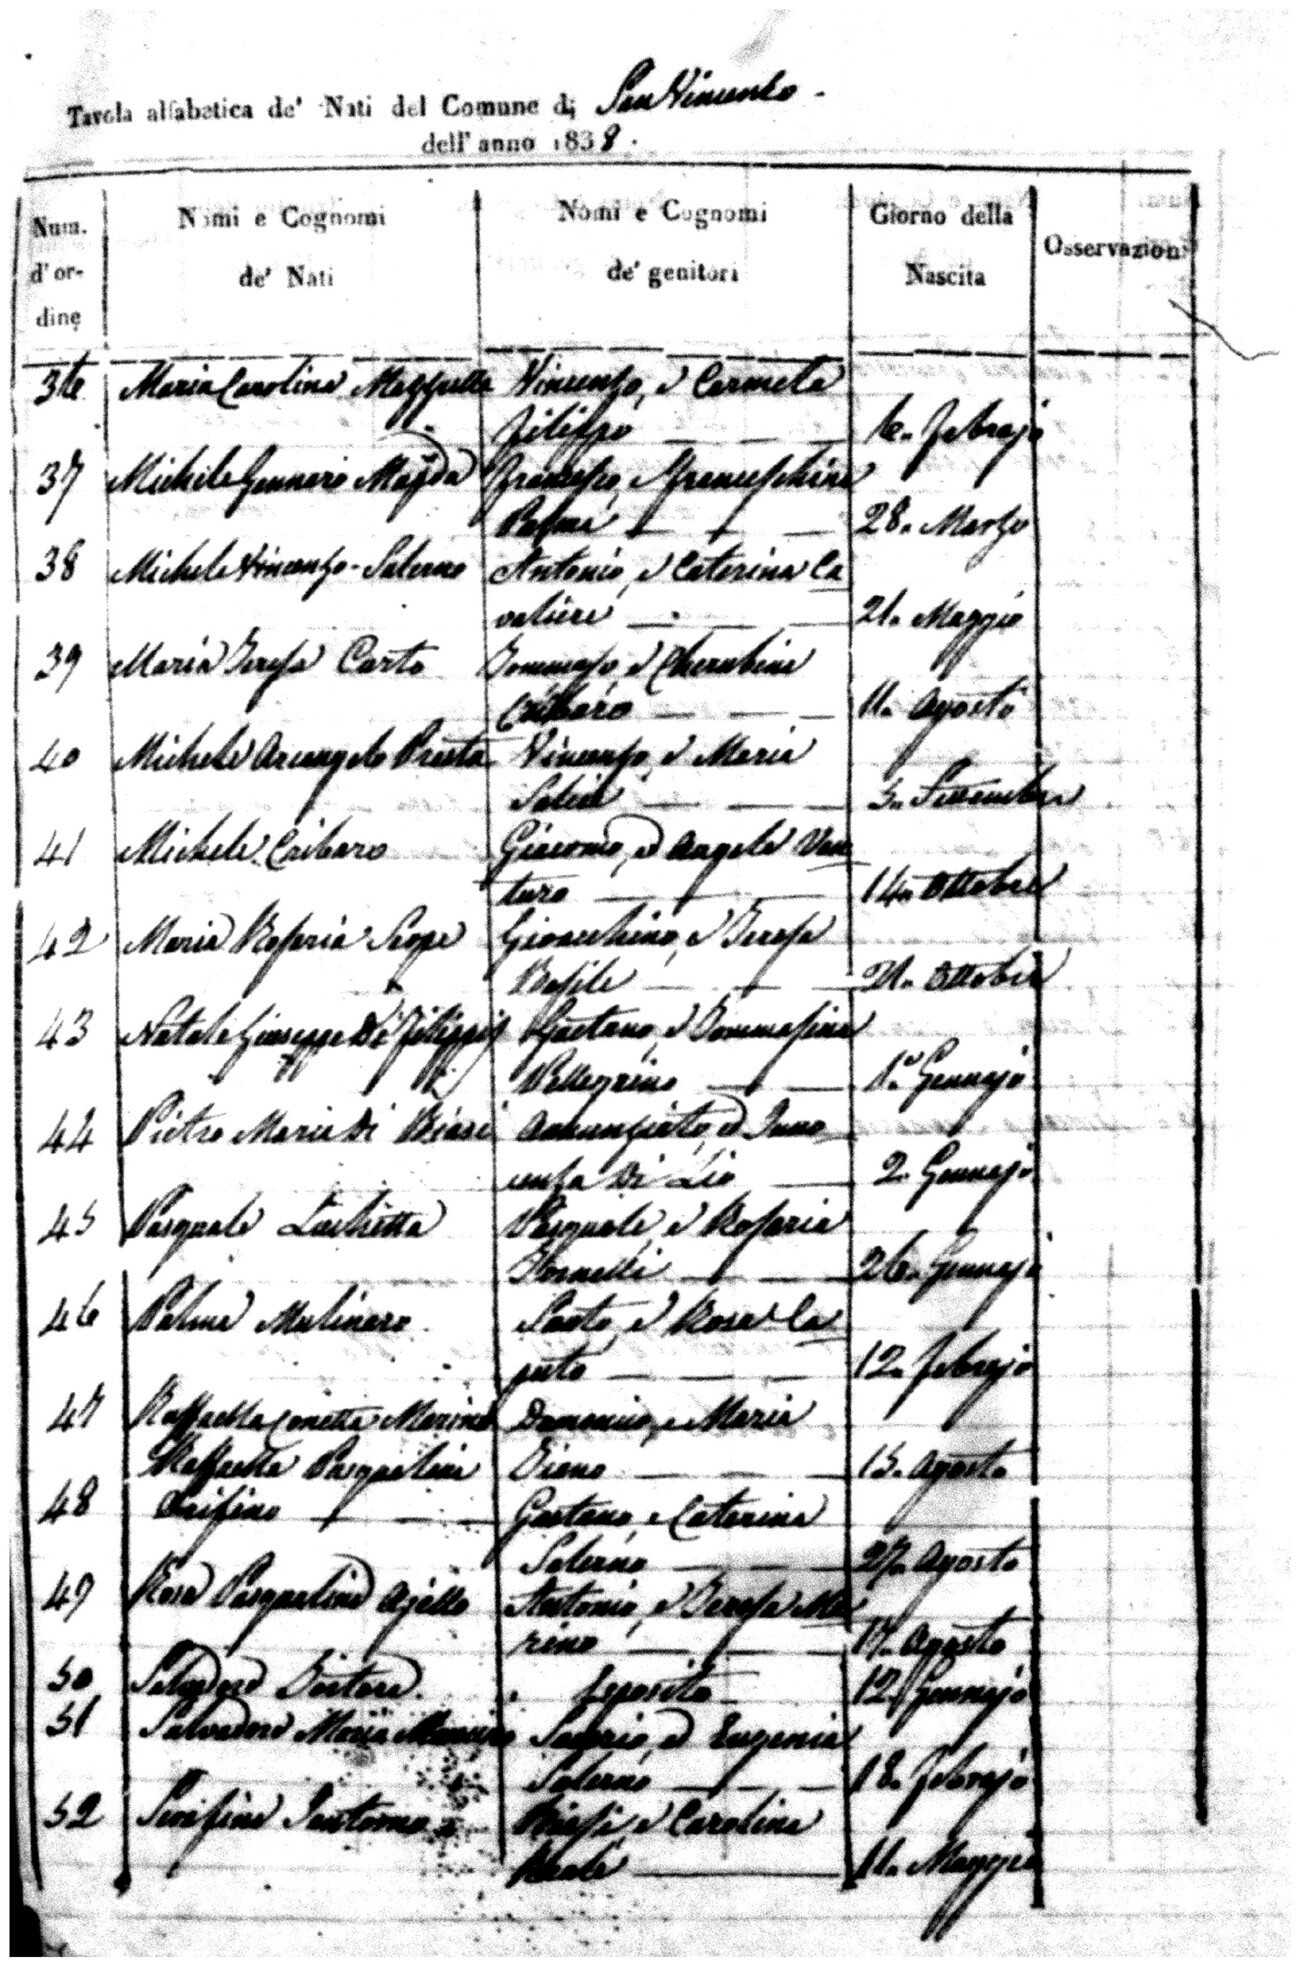 Tavola alfabetica de' Nati del Comune di San Vincenzo
dell'anno 1838.
Num. d'ordine Nomi e Cognomi de' Nati Nomi e Cognomi de' genitori Giorno della Nascita Osservazioni
36 Maria Carolina Mazzulla Vincenzo, e Carmela
Filippo 6. Febrajo
37 Michele Gennaro Magda Francesco, e Franceschina
Palma 28. Marzo
38 Michele Vincenzo Salerno Antonio, e Caterina Ca
valiere 21. Maggio
39 Maria Teresa Carto Tommaso, e Cherubina
Cribaro 11. Agosto
40 Michele Arcangelo Presta Vincenzo, e Maria
3. Settembre
41 Michele Cribaro Giacomo, ed Angela Ven
turo 14. Ottobre
42 Maria Rosaria Gioacchino, e Teresa
Basile 21. Ottobre
43 Natale Giuseppe Di Filippis Gaetano, e Tommasina
Pellegrino 1° Gennajo
44 Pietro Maria Di Biasi Annunziato, ed Inno
cenza Di Lio 2. Gennajo
45 Pasquale Luchetta Pasquale, e Rosaria
Tornelli 26. Gennajo
46 Palma Molinaro Santo, e Rosa Ca
puto 12. Febrajo
47 Raffaella Marino Domenico, e Maria
Raffaella Pasqualina 13. Agosto
48 Trifino Gaetano, e Caterina
Salerno 27. Agosto
49 Rosa Pasqualina Ajello Antonio, e Teresa Ma
rino 17. Agosto
50 Esposito 12. Gennajo
51 Salvadore Maria Saverio, ed Eugenia
Salerno 18. Febrajo
52 Serafina Santoro Biasi, e Carolina
Reale 11. Maggio